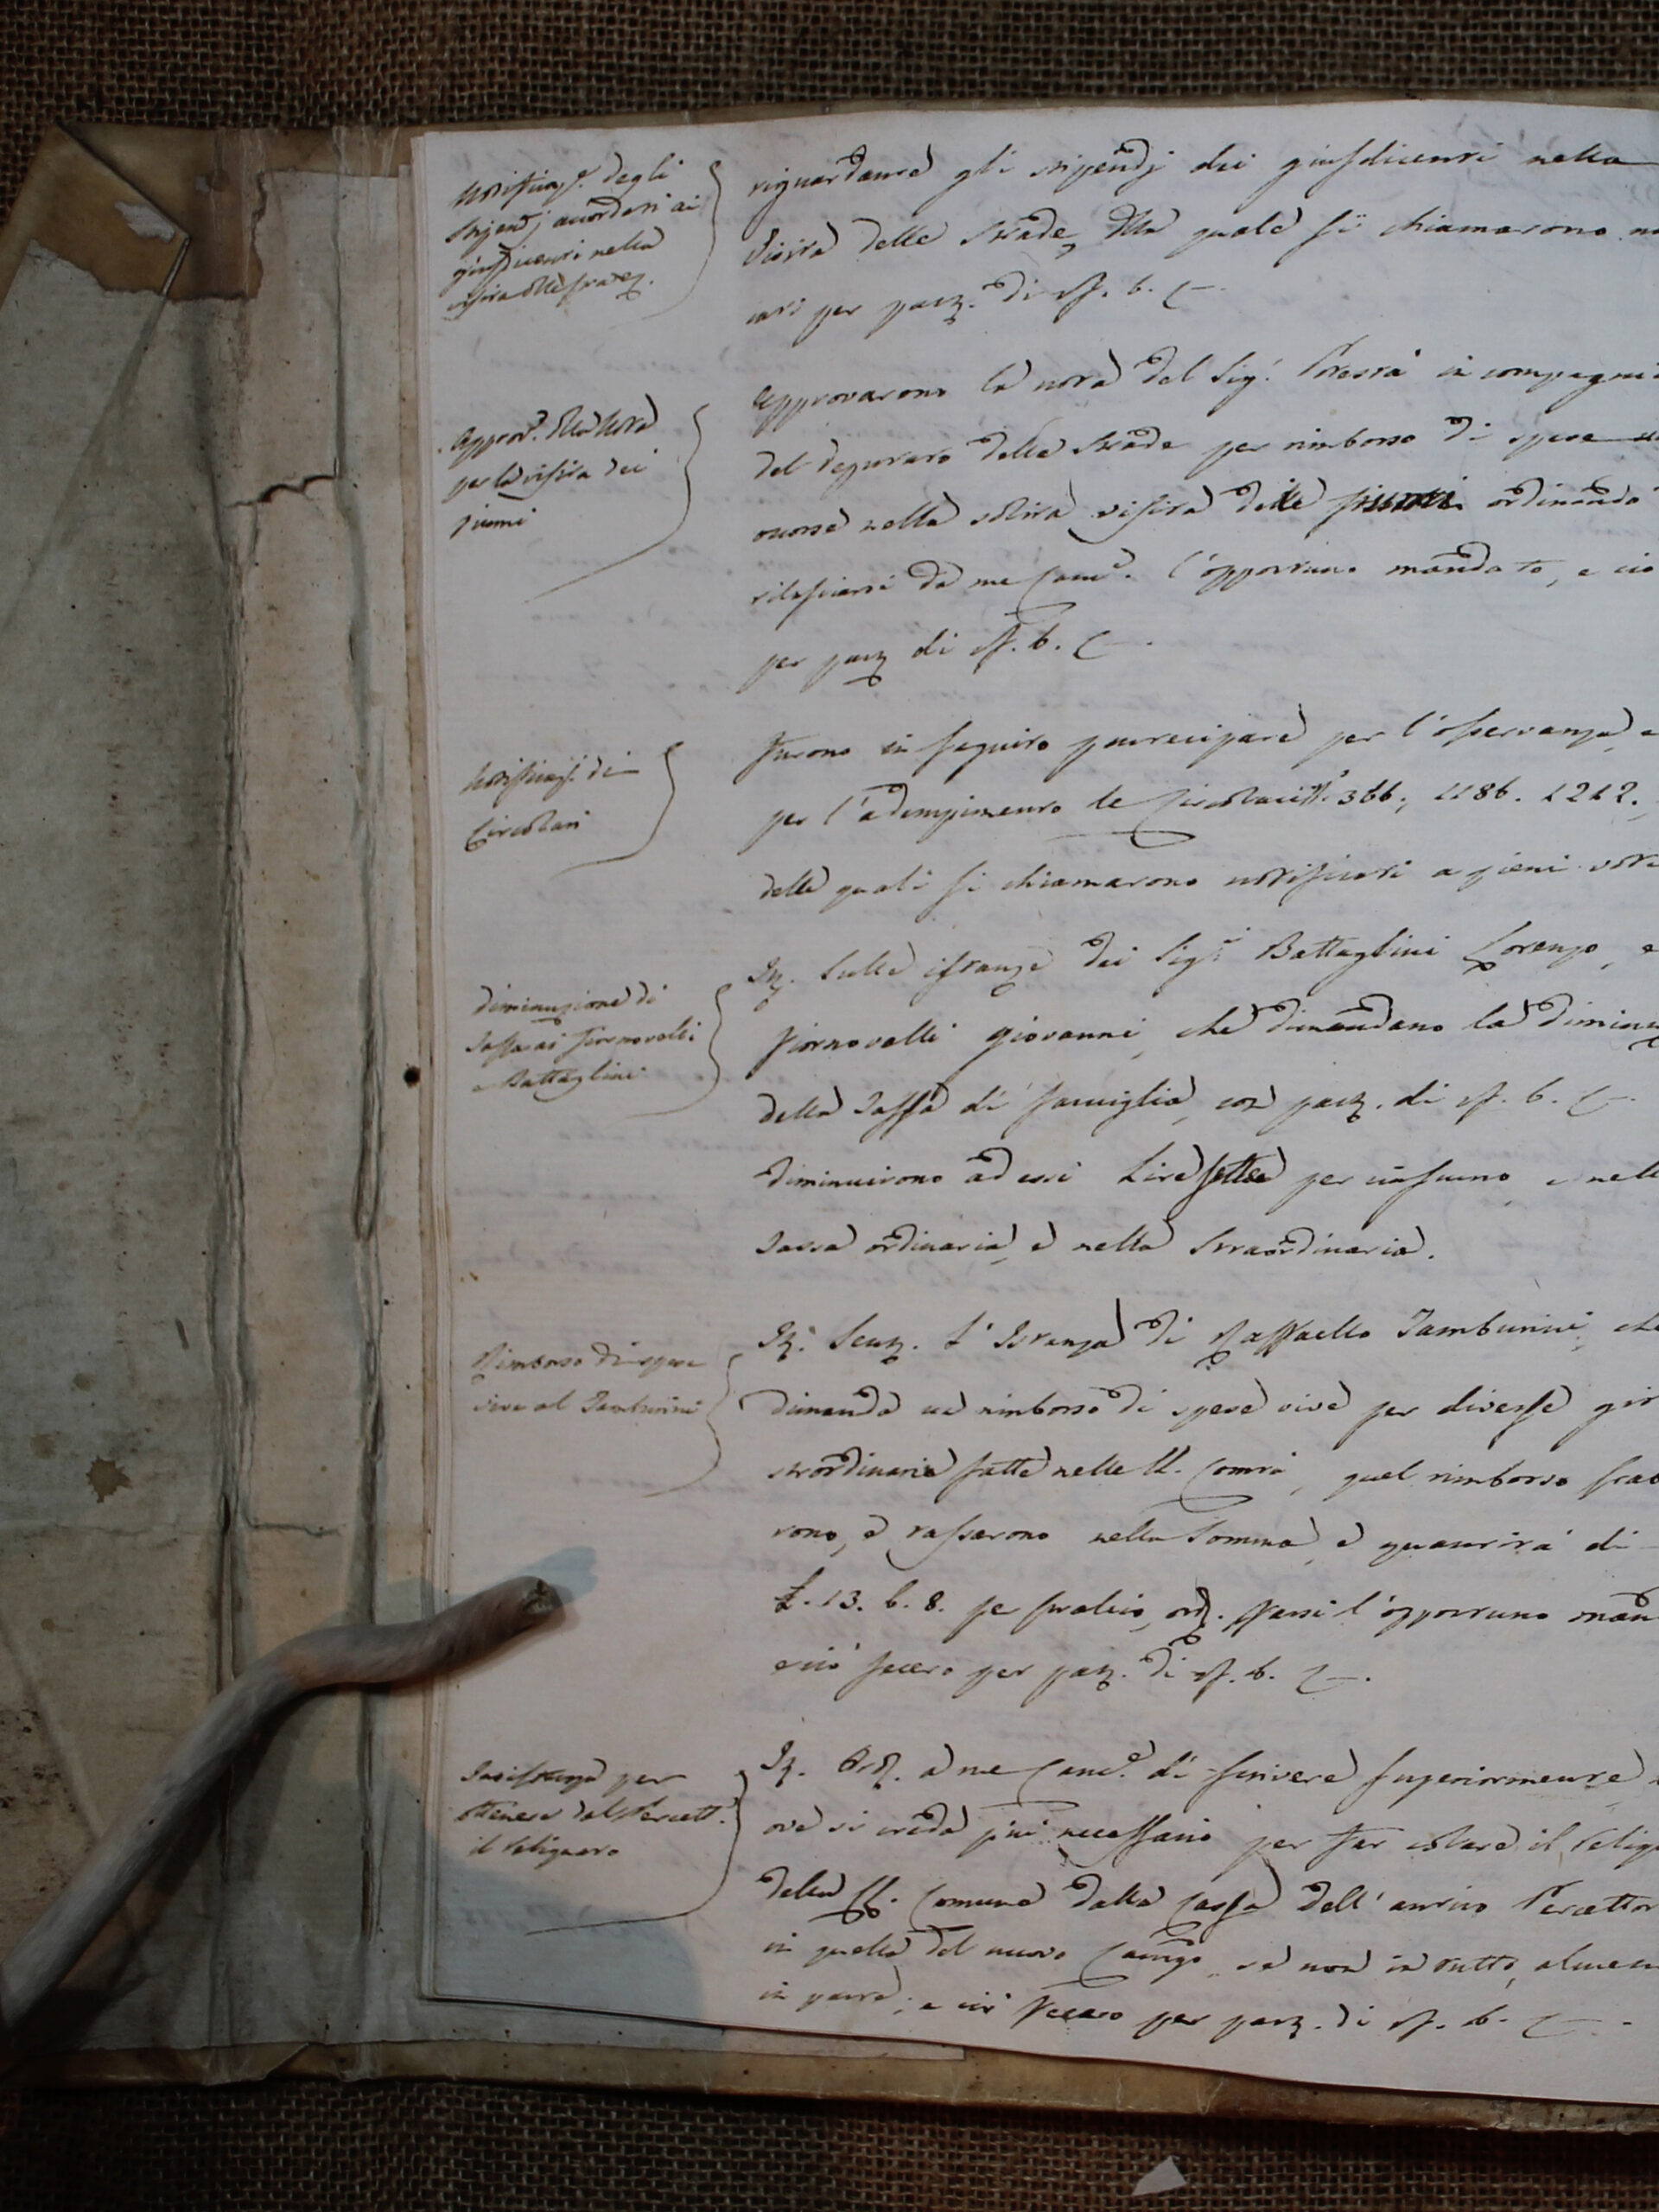 Notificaz.e degli
stipendj accordati ai
giusdicenti nella
visita delle strade
riguardante gli stipendj dei giusdicenti nella
visita delle strade, della quale si chiamarono
cati per parz. di vf. 6. C—.
Approv.e della nota
per la visita dei
fiumi
Approvarono la nota del Sig.r Potestà in compagnia
del deputato delle strade per rimborso di spese
occorse nella solita visita delle fiumi ordinando
rilasciarsi da me Canc.e l'opportuno mandato, e ciò
per parz di vf. 6. C—.
Notificaz. di
Circolari
Furono in seguito partecipate per l'osservanza, e
per l'adempimento le Circolari N. 366., 1186. 1212.,
delle quali si chiamarono notificati a pieni voti
Diminuzione di
Tassa ai Fiornovelli
e Battaglini
It. Sulle istanze dei Sig.i Battaglini Lorenzo, e
Fiornovelli Giovanni, che dimandano la diminu
della Tassa di famiglia, con parz. di vf. 6. C—.
diminuirono ad essi Lire sette per ciascuno, e nell
Tassa ordinaria, e nella Straordinaria.
Rimborso di spese
vive al Tamburini
It. Sent. L'Istanza di Raffaello Tamburini, che
dimanda un rimborso di spese vive per diverse gi
straordinarie fatte nelle II. Comtà, quel rimborso
rono, e tassarono nella Somma, e quantità di
£. 13. 6. 8. ord. farsi l'opportuno man
e ciò fecero per parz. di vf. 6. C—.
Insistenza per
ottenere dal Percett.e
il Reliquato
It. Ord. a me Canc.e di scrivere superiormente
ove si creda più necessario per far colare il Reliq
della II. Comune dalla Cassa dell'antico Percettor
in quella del nuovo Camgo se non in tutto, almen
in parte; e ciò fecero per parz. di vf. 6. C—.